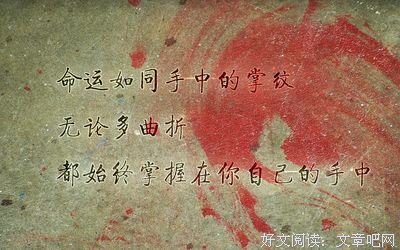 命运如同手中的掌纹
无论多曲折
都始终掌握在你自己的手中
好文阅读：文章吧网